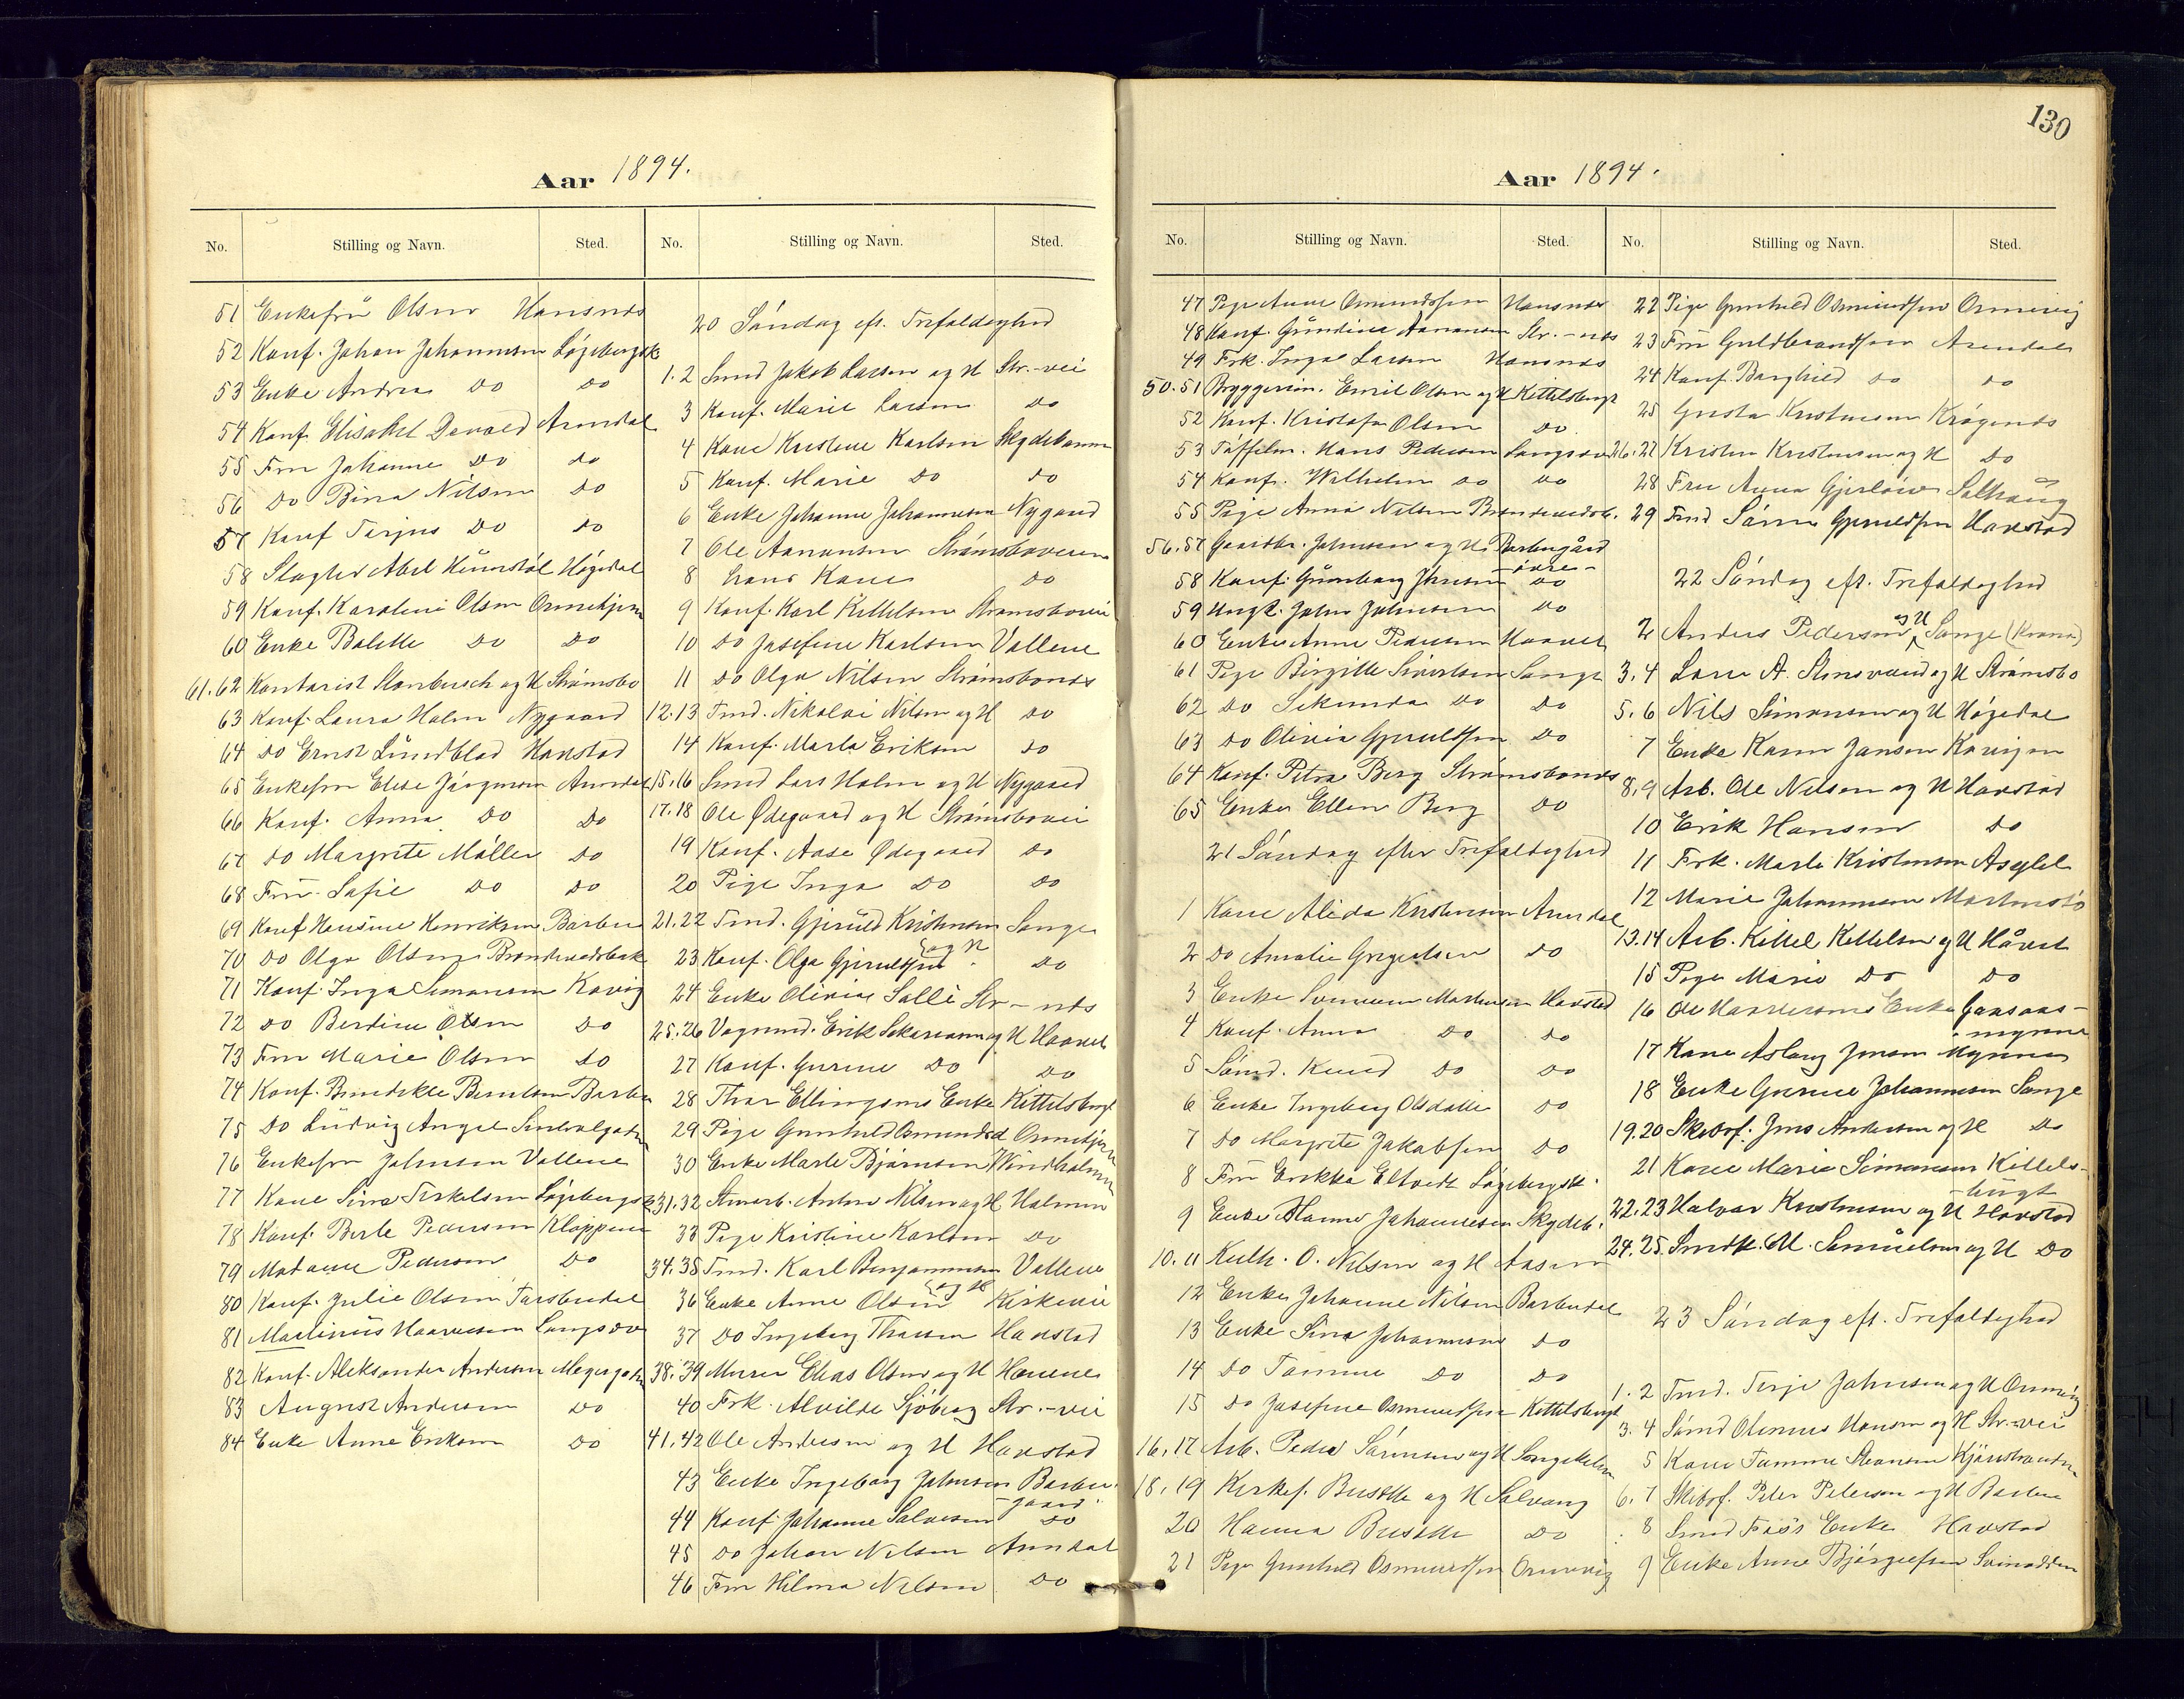 130
Aar 1894.
No. Stilling og Navn. Sted. No. Stilling og Navn. Sted.
51 Enkefrü Olsen Hansnes
52 Konf. Johan Johannesen Løgebergsk
53 Enke Andrea do do
54 Konf. Elisabet Devold Arendal
55 Fru Johanne do do
56 do Bina Nilsen do
57 Konf Terjus do do
58 Slagter Abel Høgedal
59 Konf. Karoline Olsen Ormekjern
60 Enke Bolette do do
61.62 Kontorist og H Strømsbo
63 Konf. Laura Holm Nygaard
64 do Ernst Lündblad Havstad
65 Enkefru Elise Jørgensen Arendal
66 Konf. Anna do do
67 do Margrete Møller do
68 Frü Sofie do do
69 Konf Hansine Henriksen Barbu
70 do Olga Olsen
71 Konf. Inga Simonsen Kavig
72 do Berdine Olsen do
73 Fru Marie Olsen do
74 Konf. Benedikte Berntsen Barbu
75 do Lüdvig Angel
76 Enkefru Johnsen Vollene
77 Kone Sina Terkelsen Løgebergsk
78 Konf. Berte Pedersen Kloppene
79 Madame Pedersen do
80 Konf. Julie Olsen Torsbudal
81 Martinius Langsæv
82 Konf. Aleksander Andersen
83 August Andersen do
84 Enke Anne Eriksen do
20 Søndag eft. Trefoldighed
1.2 Smed Jakob Larsen og H Str.-vei
3 Konf. Marie Larsen do
4 Kone Kristine Karlsen Skydebanen
5 Konf. Marie do do
6 Enke Johanne Johannesen Nygaard
7 Ole Aanonsen Strømsboveien
8 hans Kone do
9 Konf. Karl Kittelsen Strømsbovei
10 do Josefine Karlsen Vollene
11 do Olga Nilsen Strømsbonds
12.13 Tmd. Nikolai Nilsen og H do
14 Konf. Marta Eriksen do
15.16 Smed Lars Holm og H Nygaard
17.18 Ole Ødegaard og H Strømsbovei
19 Konf. Aase Ødegaard do
20 Pige Inga do do
21.22 Tmd. Gjeruld Kristensen Songe
og H
23 Konf. Olga Gjeruldsen do
24 Enke Olivia Salle Str-nds
25.26 Vognmd. Erik Sakariasen og H Haavet
27 Konf. Gurine do do
28 Thor Ellingsens Enke Kittelsbugt
29 Pige Gunhild Osmundsd
30 Enke Marte Bjørnsen Windholmen
31.32 Anton Nilsen og H Holmen
33 Pige Kristine Karlsen do
34.35 Tmd. Karl Benjaminsen Vollene
og H
36 Enke Anne Olsen Kirkevei
37 do Ingeborg Thorsen Havstad
38.39 Murer Elias Olsen og H Havene
40 Frk. Alvilde Sjöberg Str.-vei
41.42 Ole Andersen og H Havstad
43 Enke Ingeborg Johnsen Barbu-
gaard
44 Konf. Johanne Salvesen do
45 do Johan Nilsen Arendal
46 Fru Hilma Nilsen do
Aar 1894.
No. Stilling og Navn. Sted. No. Stilling og Navn. Sted.
47 Pige Anne Osmundsen Hansnes
48 Konf. Gündine Aanonsen Str.-nds
49 Frk. Inga Larsen Hansnes
50.51 Emil Olsen og H Kittelsbugt
52 Konf. Kristofer Olsen do
53 Tøffelm. Hans Pedersen Langsæv
54 Konf. Wilhelm do do
55 Pige Anna Nilsen
56.57 Gaardbr. Johnsen og H Barbugård
øvre-
58 Konf. Jensen do
59 Ungk. John Johnsen do
60 Enke Anne Pedersen Haavet
61 Pige Birgitte Sivertsen Songe
62 do Sekunda do do
63 do Olivia Gjeruldsen do
64 Konf. Petra Berg Strømsbonds
65 Enke Ellen Berg do
21 Søndag efter Trefoldighed
1 Kone Alida Kristensen Arendal
2 do Amalie Gregertsen do
3 Enke Martinsen Havstad
4 Konf. Anna do do
5 Sømd. Knud do do
6 Enke Ingeborg Olsdatter do
7 do Margrete Jakobsen do
8 Frü Erikka Eltvedt Løgebergsk.
9 Enke Hanne Johannesen Skydeb.
10.11 Kulh. O. Nilsen og H Aasen
12 Enke Johanne Nilsen Barbudal
13 Enke Sina Johannesen do
14 do Tomine do do
15 do Josefine Osmundsen Kittelsbugt
16.17 Arb. Peder Sørensen og H
18.19 Kirkef. Bustte og H Solvang
20 Hanna Bustte do
21 Pige Gunhild Osmundsen Ormevig
22 Pige Gunhild Osmundsen Ormevig
23 Frü Guldbrandsen Arendal
24 Konf. Borghild do do
25 Gusta Kristensen Krøgenes
26.27 Kristen Kristensen og H do
28 Fru Anna Gjerløw Solhaug
29 Tmd Søren Gjeruldsen Havstad
22 Søndag eft. Trefoldighed
og H
2 Anders Pedersen Songe (Krana)
3.4 Lars A. Stensvand og H Strømsbo
5.6 Nils Simonsen og H Høgedal
7 Enke Karen Jansen
8.9 Arb. Ole Nilsen og H Havstad
10 Erik Hansen do
11 Frk. Marte Kristensen Asylet
12 Marie Johannesen
13.14 Arb. Kittel Kittelsen og H Håvet
15 Pige Marie do do
16 Ole Enke Gaasaas-
-myren
17 Kone Aslaug Jensen Myrene
18 Enke Gurine Johannesen Songe
19.20 Skibsf. Jens Andersen og H do
21 Kone Marie Simonsen Kittels-
-bugt
22.23 Halvor Kristensen og H Havstad
24.25. M. Samuelsen og H do
23 Søndag eft. Trefoldighed
1.2 Tmd. Terje Johnsen og H Ormevig
3.4 Sømd Olenius Hansen og H Str.-vei
5 Kone Tomine Kjørstranden
6.7 Skibsf. Peter Petersen og H Barbu
8 Smed Enke Havstad
9 Enke Anne Bjørgulfsen Svinodden